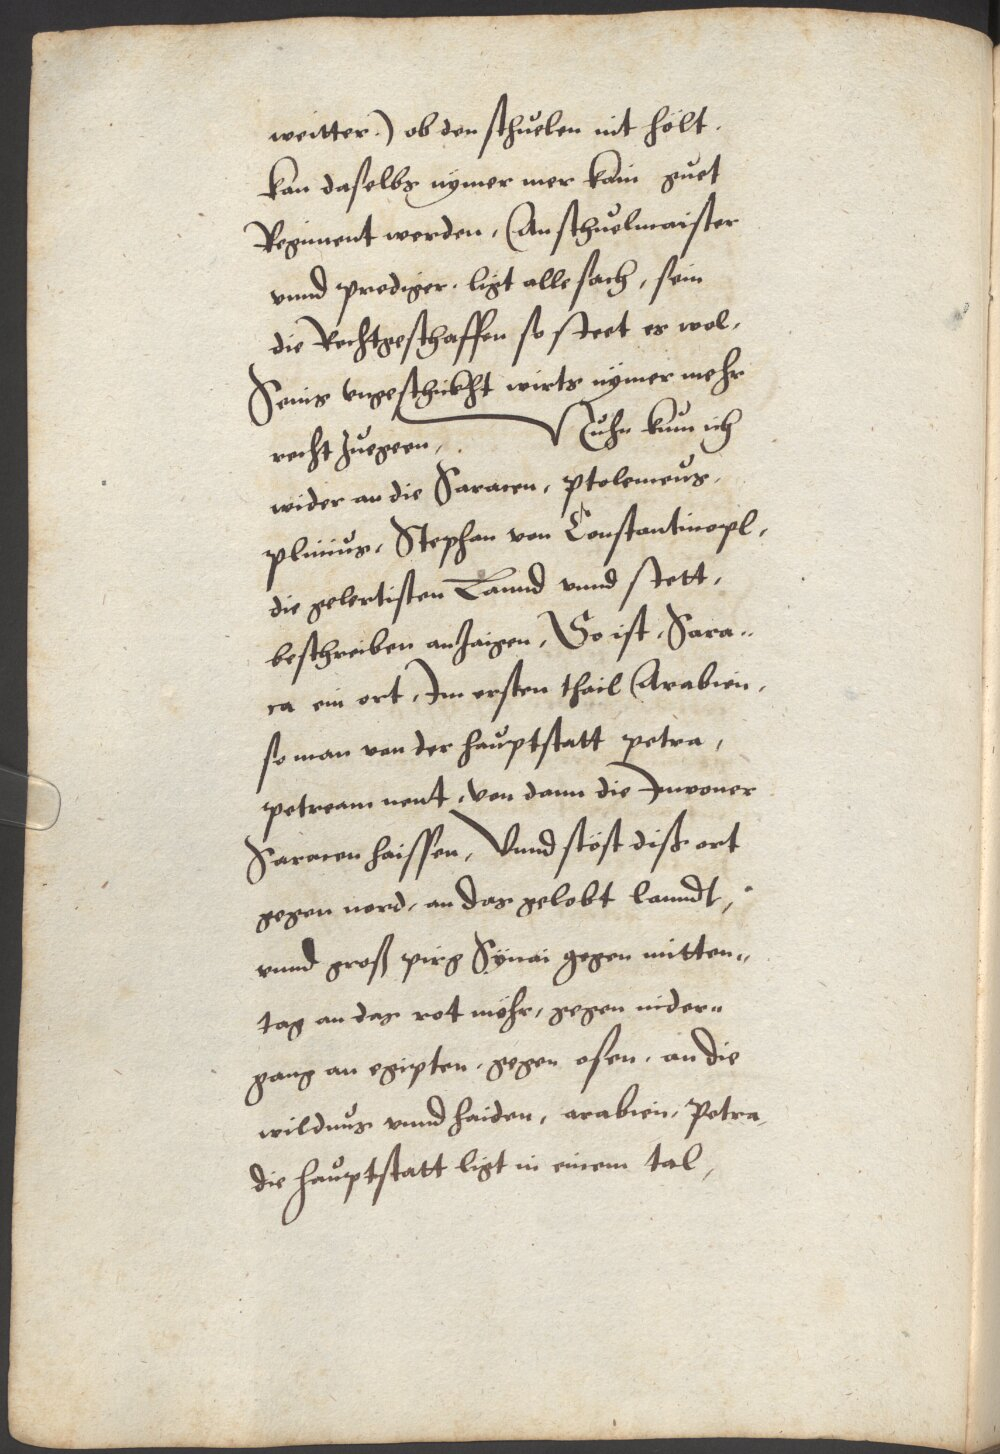 weitter.) ob den schuelen nit hölt.
kan daselbs nÿmer mer kain guet
Regiment werden, An schuelmaister
vnnd prediger. ligt alle sach, sein
die Rechtgeschaffen so steet es wol,
Seins vngeschickht wirts nÿmer mehr
recht zuegeen, Nuhn kum ich
wider an die Saracen, ptolemeus,
plinius, Stephan von Constantinopl,
die gelertisten Lannd vnnd stett,
beschreiben anzaigen, So ist, Sara„
ca ein ort, Im ersten thail Arabien,
so man von der hauptstatt petra,
petream nent, von dann die Inwoner
Saracen haissen, Vnnd stöst diss ort
gegen nord, an das gelobt lanndt,
vnnd gross pirg Sÿnai gegen mitten„
tag an das rot möhr, gegen nider„
gang an egipten, gegen osen, an die
wildnus vnnd haiden, arabien, Petra,
die hauptstatt ligt in einem tal,